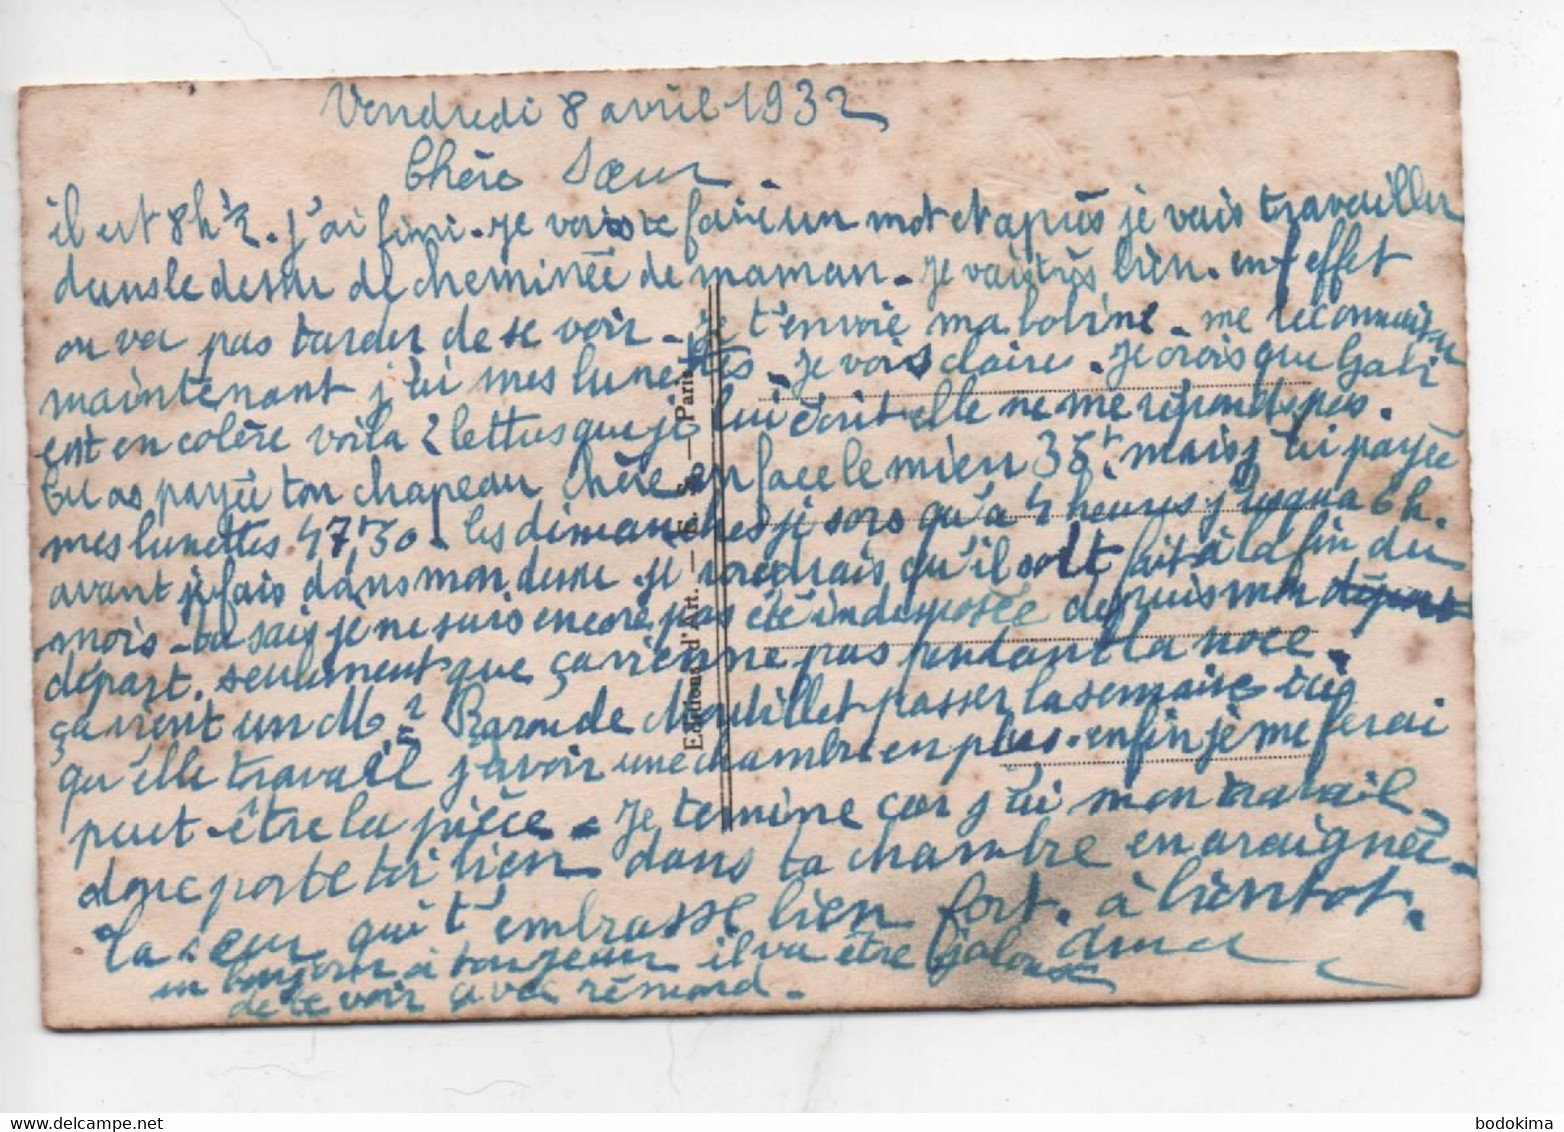 Vendredi 8 avril 1932
Chère Sœur.
il est 8h½. j'ai fini. je vais te faire un mot et après je vais travailler
dans le dessu de cheminée de maman. je vai très bien. en effet
on va pas tarder de se voir. je t'envoie ma bobine. me reconnai tu
maintenant j'ai mes lunettes. je vois claire. je crois que Gabi
est en colère voila 2 lettres que je lui écrit elle ne me réponds pas.
tu as payée ton chapeau chère en face le mien 35f. mais j'ai payée
mes lunettes 47f,50. les dimanches je sors qu'à 4 heures jusqua 6h.
avant je fais dans mon dessu. je voudrais qu'il soit fait à la fin du
mois. tu sais je ne suis encore pas été indisposée depuis mon départ
départ. seulement que ça vienne pas pendant la noce.
ça vient un Mr ? de passer la semaine ici
qu'elle travail j'avoir une chambre en plus. enfin je me ferai
peut-être la pièce. Je termine car j'ai mon travail
donc porte toi bien dans ta chambre en araignée.
Ta sœur qui t'embrasse bien fort. à bientot.
un bonjour à ton Jean il va être jaloux
de te voir avec rémond.
Editions d'Art. — E. S. — Paris